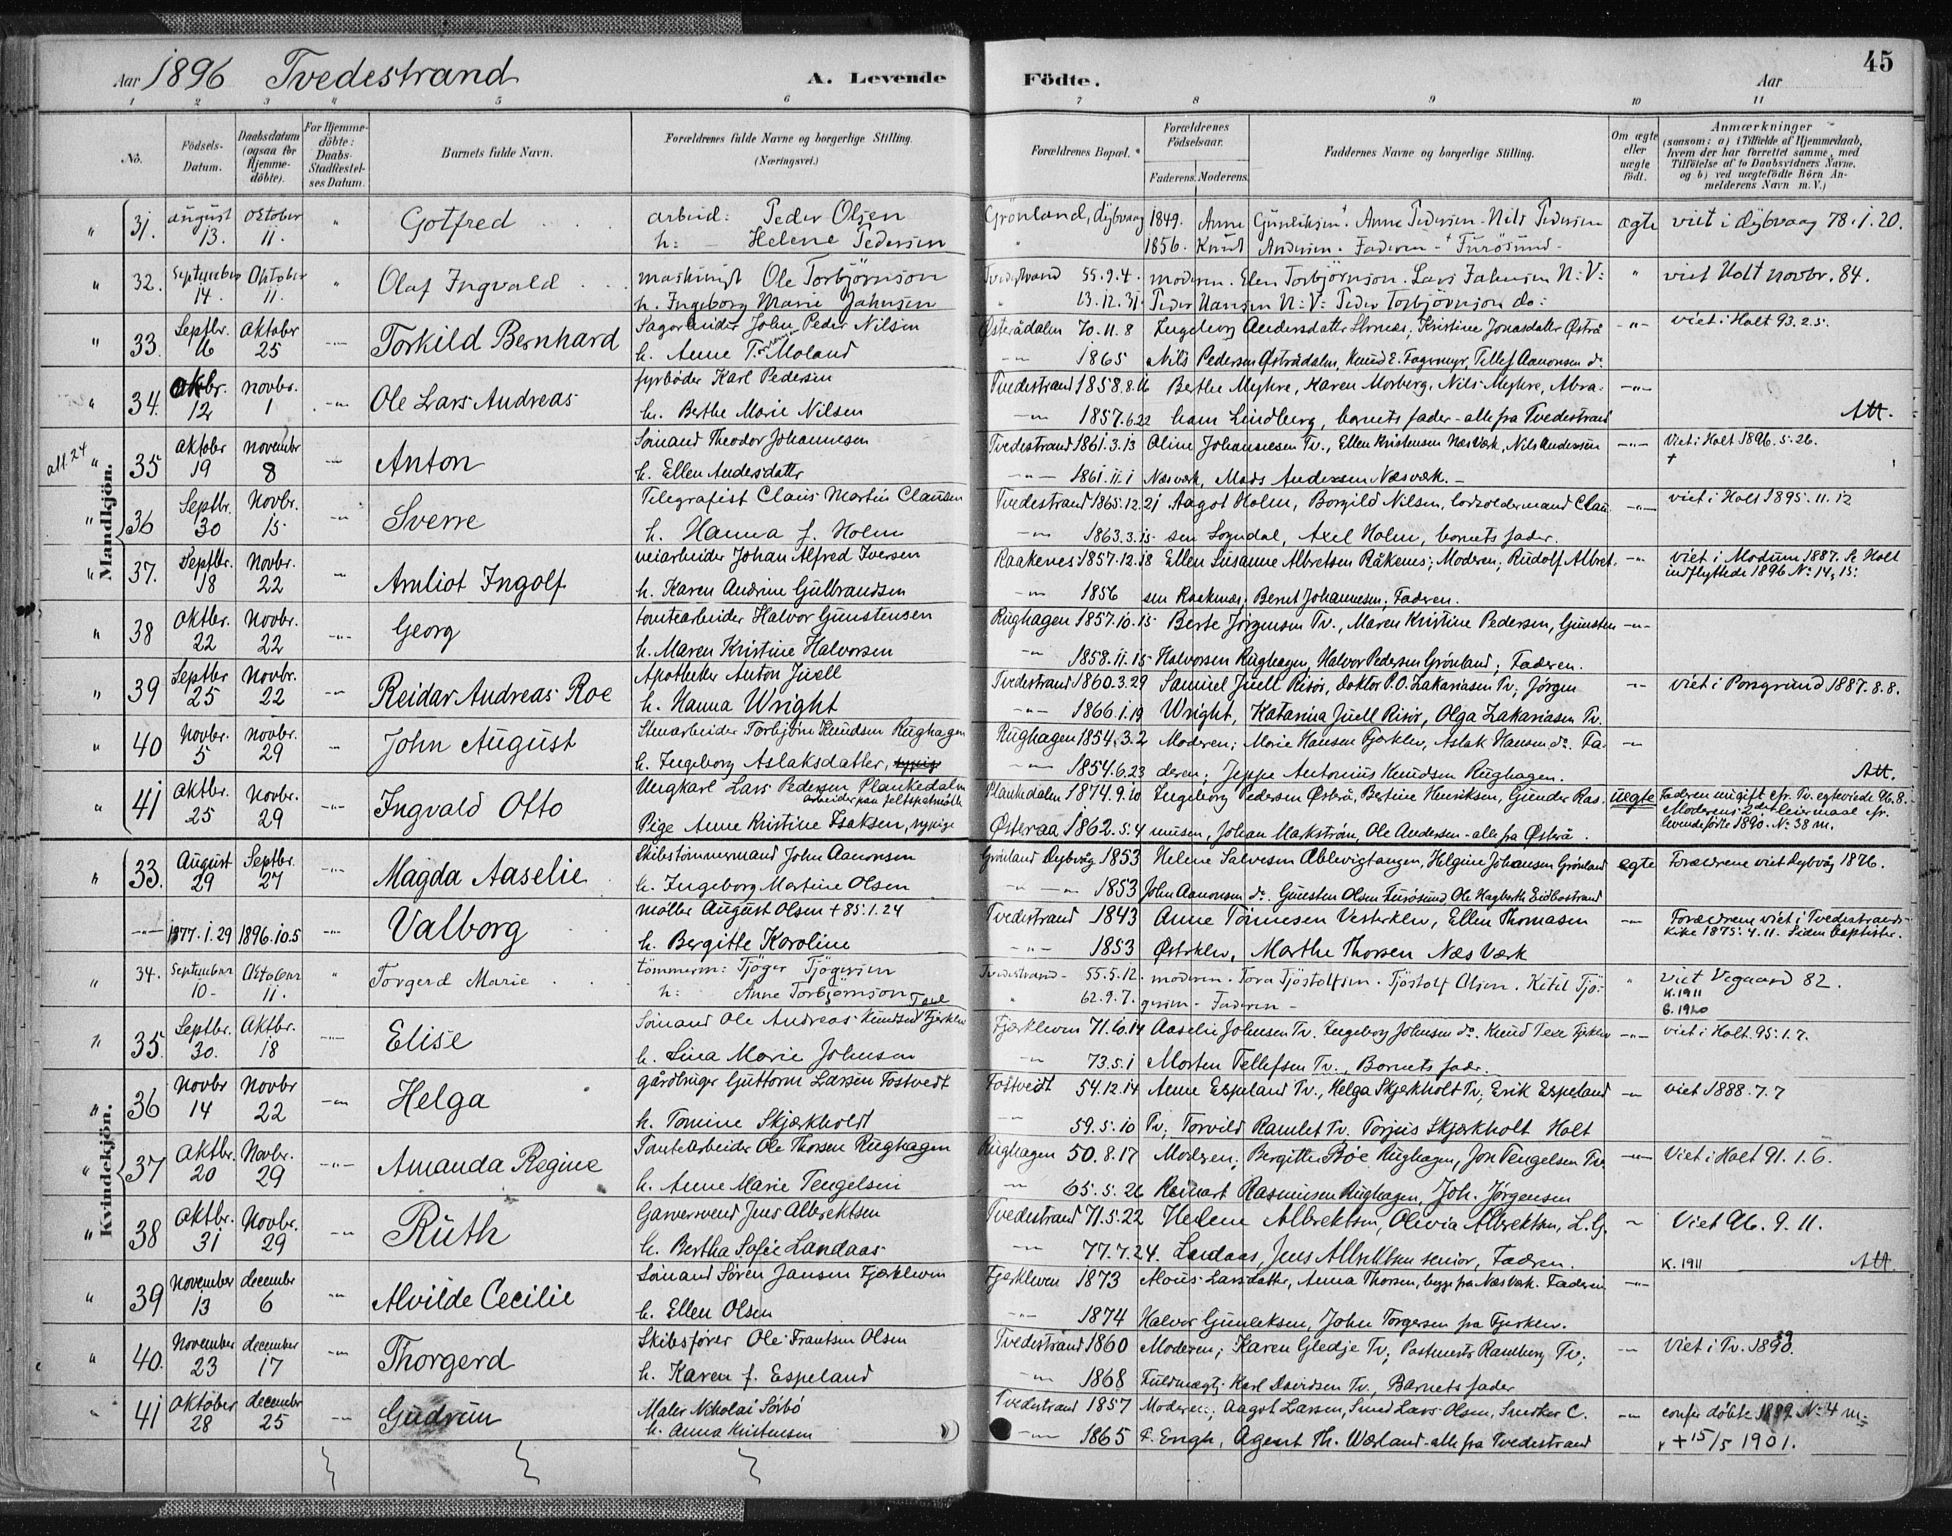 Aar 1896 Tvedestrand A. Levende Födte. Aar 45
1 2 3 4 5 6 7 8 9 10 11
No. Födsels-Datum. Daabsdatum (ogsaa for Hjemme-döbte). For Hjemme-döbte: Daabs-Stadfæstel-ses Datum. Barnets fulde Navn. Forældrenes fulde Navne og borgerlige Stilling. (Næringsvei.) Forældrenes Bopæl. Forældrenes Födselsaar. Faderens. Moderens. Faddernes Navne og borgerlige Stilling. Om ægte eller uægte födt. Anmærkninger (saasom: a) i Tilfælde af Hjemmedaab, hvem der har forrettet samme, med Tilföielse af to Daabsvidners Navne, og b) ved uægtefödte Börn Anmelderens Navn m. V.)
Mandkjön.
31. august 13. Oktober 11. Gotfred arbeid: Peder Olsen Grönland, dybvaag 1849. Anne Gunleksen Anne Pedersen Nils Pedersen ægte viet i dybvaag 78.1.20.
h: Helene Pedersen 1856. Knud Andersen. Faderen Furösund
32. September 14. Oktober 11. Olaf Ingvald maskinist Ole Torbjörnson Tvedestrand 55.9.4. moderen. Elen Torbjörnson. Lars Jahnsen N:V: viet Holt novbr. 84.
h. Ingeborg Marie Jahnsen Peder Hansen N:V: Peder Torbjörnson do:
33. Septbr. 16 Oktobr 25 Torkild Bernhard Sagarbeider John Peder Nilsen Østerådalen 70.11.8 Ingeborg Andersdatter, Kristine Jonasdatter Østrå viet i Holt 93.2.5.
h. Anne T. Moland 1865 Nils Pedersen Østrådalen, Knud E. Fagermyr, Tellef Aanonsen do.
34. Oktbr. 12 novbr. 1 Ole Lars Andreas fyrbøder Karl Pedersen Tvedestrand 1858.8.16 Berthe Myhre, Karen Morberg, Nils Myhre, Abra-
h. Berthe Marie Nilsen 1857.6.22 ham Lindberg, barnets fader - alle fra Tvedestrand Att.
att. 24 35 Oktober 19 november 8 Anton Sømand Theodor Johannesen Tvedestrand 1861.3.13 Oline Johannesen Tv., Ellen Kristensen Næs Værk, Nils Andersen Viet i Holt 1896.5.26.
h. Ellen Andersdatter 1861.11.1 Næsværk, Mads Andersen Næsværk.
36 Septbr. 30 Novbr. 15 Sverre Telegrafist Claus Martin Clausen Tvedestrand 1865.12.21 Aagot Holm, Borgild Nilsen, lodsoldermand Clau- viet i Holt 1895.11.12
h. Hanna f. Holm 1863.3.15 sen Sogndal, Axel Holm, barnets fader.
37. Septbr. 18 Novbr. 22 Arnliot Ingolf veiarbeider Johan Alfred Iversen Raakenes 1857.12.18 Ellen Susanne Albretsen Råkenes; Moderen; Rudolf Albret- viet i Modum 1887. Til Holt
h. Karen Andrine Gulbrandsen 1856 sen Raaknes; Bernt Johannesen; Faderen. indflyttede 1896 No 14, 15.
38 Oktbr. 22 Novbr. 22 Georg tomtearbeider Halvor Gunstensen Rughagen 1857.10.15 Berte Jörgensen Tv., Maren Kristine Pedersen, Gunsten
h. Maren Kristine Halvorsen 1858.11.15 Halvorsen Rughagen, Halvor Pedersen Grönland; Faderen.
39 Septbr 25 Novbr. 22 Reidar Andreas Roe Apotheker Anton Juell Tvedestrand 1860.3.29 Samuel Juell Risör, Doktor P.O. Zakariasen Tv; Jörgen viet i Porsgrund 1887.8.8.
h. Hanna Wright 1866.1.19 Wright, Katarina Juell Risör, Olga Zakariasen Tv.
40 Novbr. 5 novbr. 29 John August Stenarbeider Torbjørn Knudsen Rughagen Rughagen 1854.3.2 Moderen; Marie Hansen Fjærklev, Aslak Hansen do. Fa-
h. Ingeborg Aslaksdatter, 1854.6.23 deren; Jeppe Antonius Knudsen Rughagen. Att.
41 Oktbr. 25 Novbr. 29 Ingvald Otto Ungkarl Lars Pedersen Plankedalen arbeider paa feltspatmølle Plankedalen 1874.9.10 Ingeborg Pedersen Østerå, Bertine Henriksen, Gunder Ras- uegte Faderen ungift
Pige Anne Kristine Isaksen, Østeraa 1862.5.4 mussen, Johan Markström, Ole Andersen - alle fra Østerå. levendefödte 1890. No 38 m.
Kvindekjön.
33. August 29 Septbr. 27 Magda Aaselie Skibstømmermand John Aanonsen Grönland Dybvåg 1853 Helene Salvesen Ablevigtangen, Helgine Johansen Grönland egte Forældrene viet Dybvåg 1876.
h. Ingeborg Martine Olsen 1853 John Aanonsen do. Gunsten Olsen Furøsund Ole Hagberth Eidbostrand
1877.1.29 1896.10.5 Valborg møller August Olsen + 85.1.24 Tvedestrand 1843 Anne Tönnesen Vestrklev, Ellen Thomasen Forældrene viet i Tvedestrands
h. Bergitte Karoline 1853 Østrklev, Marthe Thorsen Næs Værk Kirke 1875.4.11. Siden baptister.
34. September 10 Oktober 11. Torgerd Marie tömmerm: Tjöger Tjögersen Tvedestrand 55.5.12. moderen. Tora Tjöstolfsen. Tjöstolf Olsen. Kitil Tjö- viet Vegaard 82.
h: Anne Torbjörnson 62.9.7. gersen - Faderen K. 1911
35. Septbr. 30. Oktbr. 18 Elise Sømand Ole Andreas Knudsen Fjerklev Fjærkleven 71.10.14 Aaselie Johnsen Tv. Ingeborg Johnsen do. Knud Texe Fjerklev viet i Holt. 95.1.7.
h. Lina Marie Johnsen 73.5.1 Morten Tellefsen Tv., Barnets fader.
36 Novbr 14 Novbr 22 Helga gårdbruger Guttorm Larsen Fostvedt Fostvedt 54.12.14 Anne Espeland Tv., Helga Skjærkholt Tv; Erik Espeland viet 1888.7.7
h. Tomine Skjærkholdt 59.5.10 Tv; Torvild Ramlet Tv. Torjus Skjærkholt Holt
37 Oktbr. 20 Novbr. 29 Amanda Regine Tomtearbeider Ole Thorsen Rughagen Rughagen 50.8.17 Moderen; Bergitte Bøe Rughagen, Jon Tengelsen Tv. Viet i Holt 91.1.6.
h. Anne Marie Tengelsen 65.5.26 Reinart Rasmussen Rughagen, Joh. Jørgensen
38 Oktbr. 31 Novbr. 29 Ruth Garversvend Jens Albrektsen Tvedestrand 71.5.22 Helene Albrektsen, Olivia Albrektsen, L.G. Viet 96.9.11.
h. Bertha Sofie Landaas 77.7.24. Landaas, Jens Albrektsen senior, Faderen. K. 1911 Att.
39 November 13 december 6 Alvilde Cecilie Sømand Søren Jansen Fjærkleven Fjerkleven 1873 Larsdatter, Anna Thorsen, begge fra Næsværk. Faderen
h. Ellen Olsen 1874 Halvor Gunleksen, John Torgersen fra Fjerklev.
40. November 23 december 17 Thorgerd Skibsfører Ole Frantsen Olsen Tvedestrand 1860 Moderen; Karen Gledje Tv; Postmester Ramberg Tv; Viet i Tv. 1889.
h. Karen f. Espeland 1868 Fuldmægt. Karl Davidsen Tv., Barnets fader
41 Oktober 28 december 25 Gudrun Maler Nikolai Sørbö Tvedestrand 1857 Moderen; Aagot Larsen, Smed Lars Olsen, Snedker C. confer döbte 1899. No 4 m.
h. Anna Kristensen 1865 F. Engh, Agent Th. Wærland - alle fra Tvedestrand + 15/5 1901.